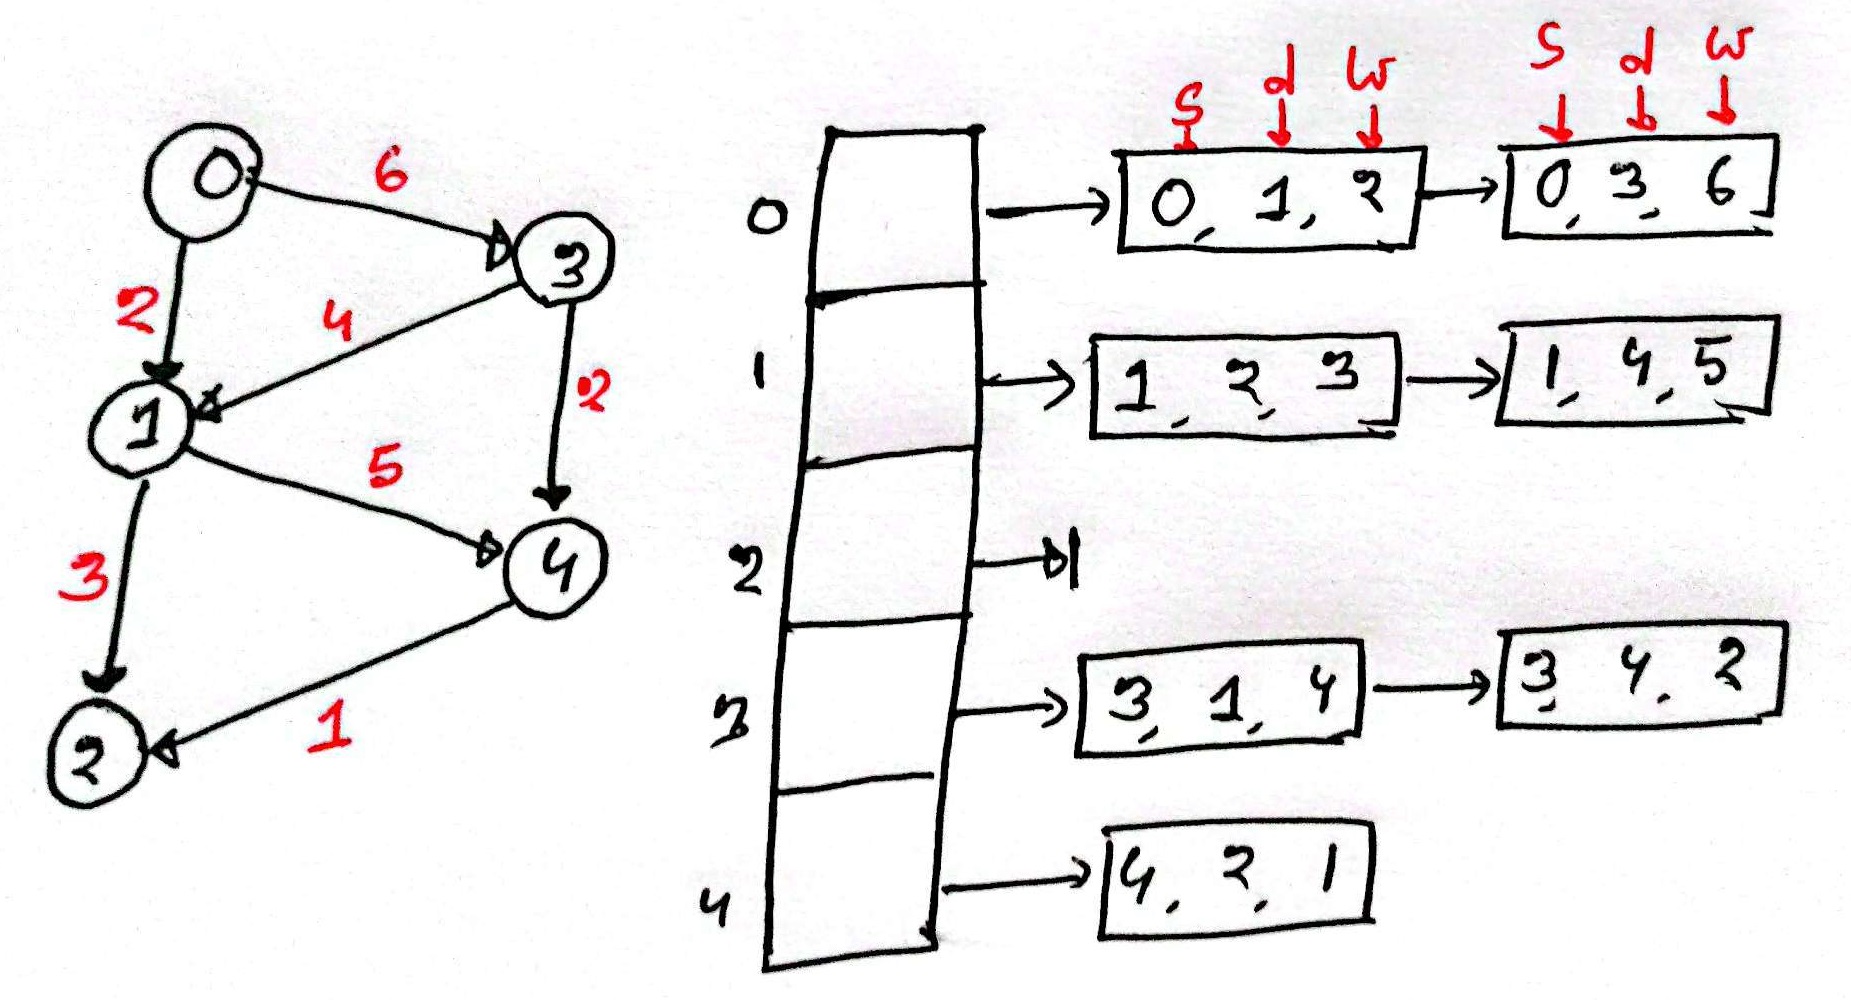 0
6
3
2
4
2
1
5
4
3
1
2
S d w
S d w
0
0, 1, 2
0, 3, 6
1
1, 2, 3
1, 4, 5
2
3
3, 1, 4
3, 4, 2
4
4, 2, 1